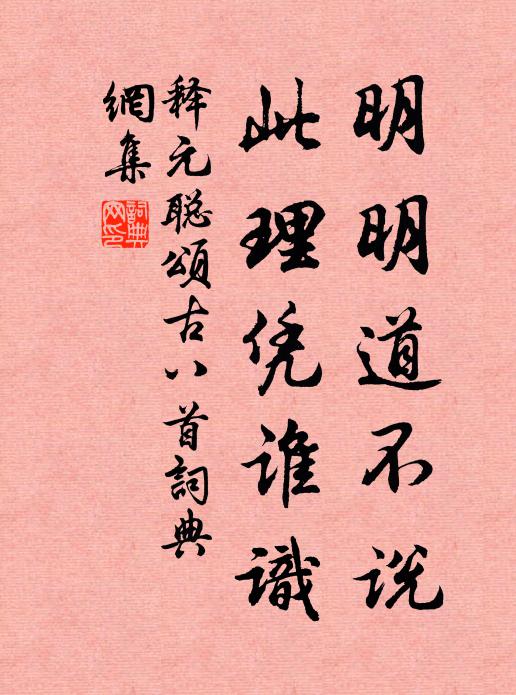 明明道不说
此理凭谁識
释元聪頌古八首詞典
網集
詞典
网印